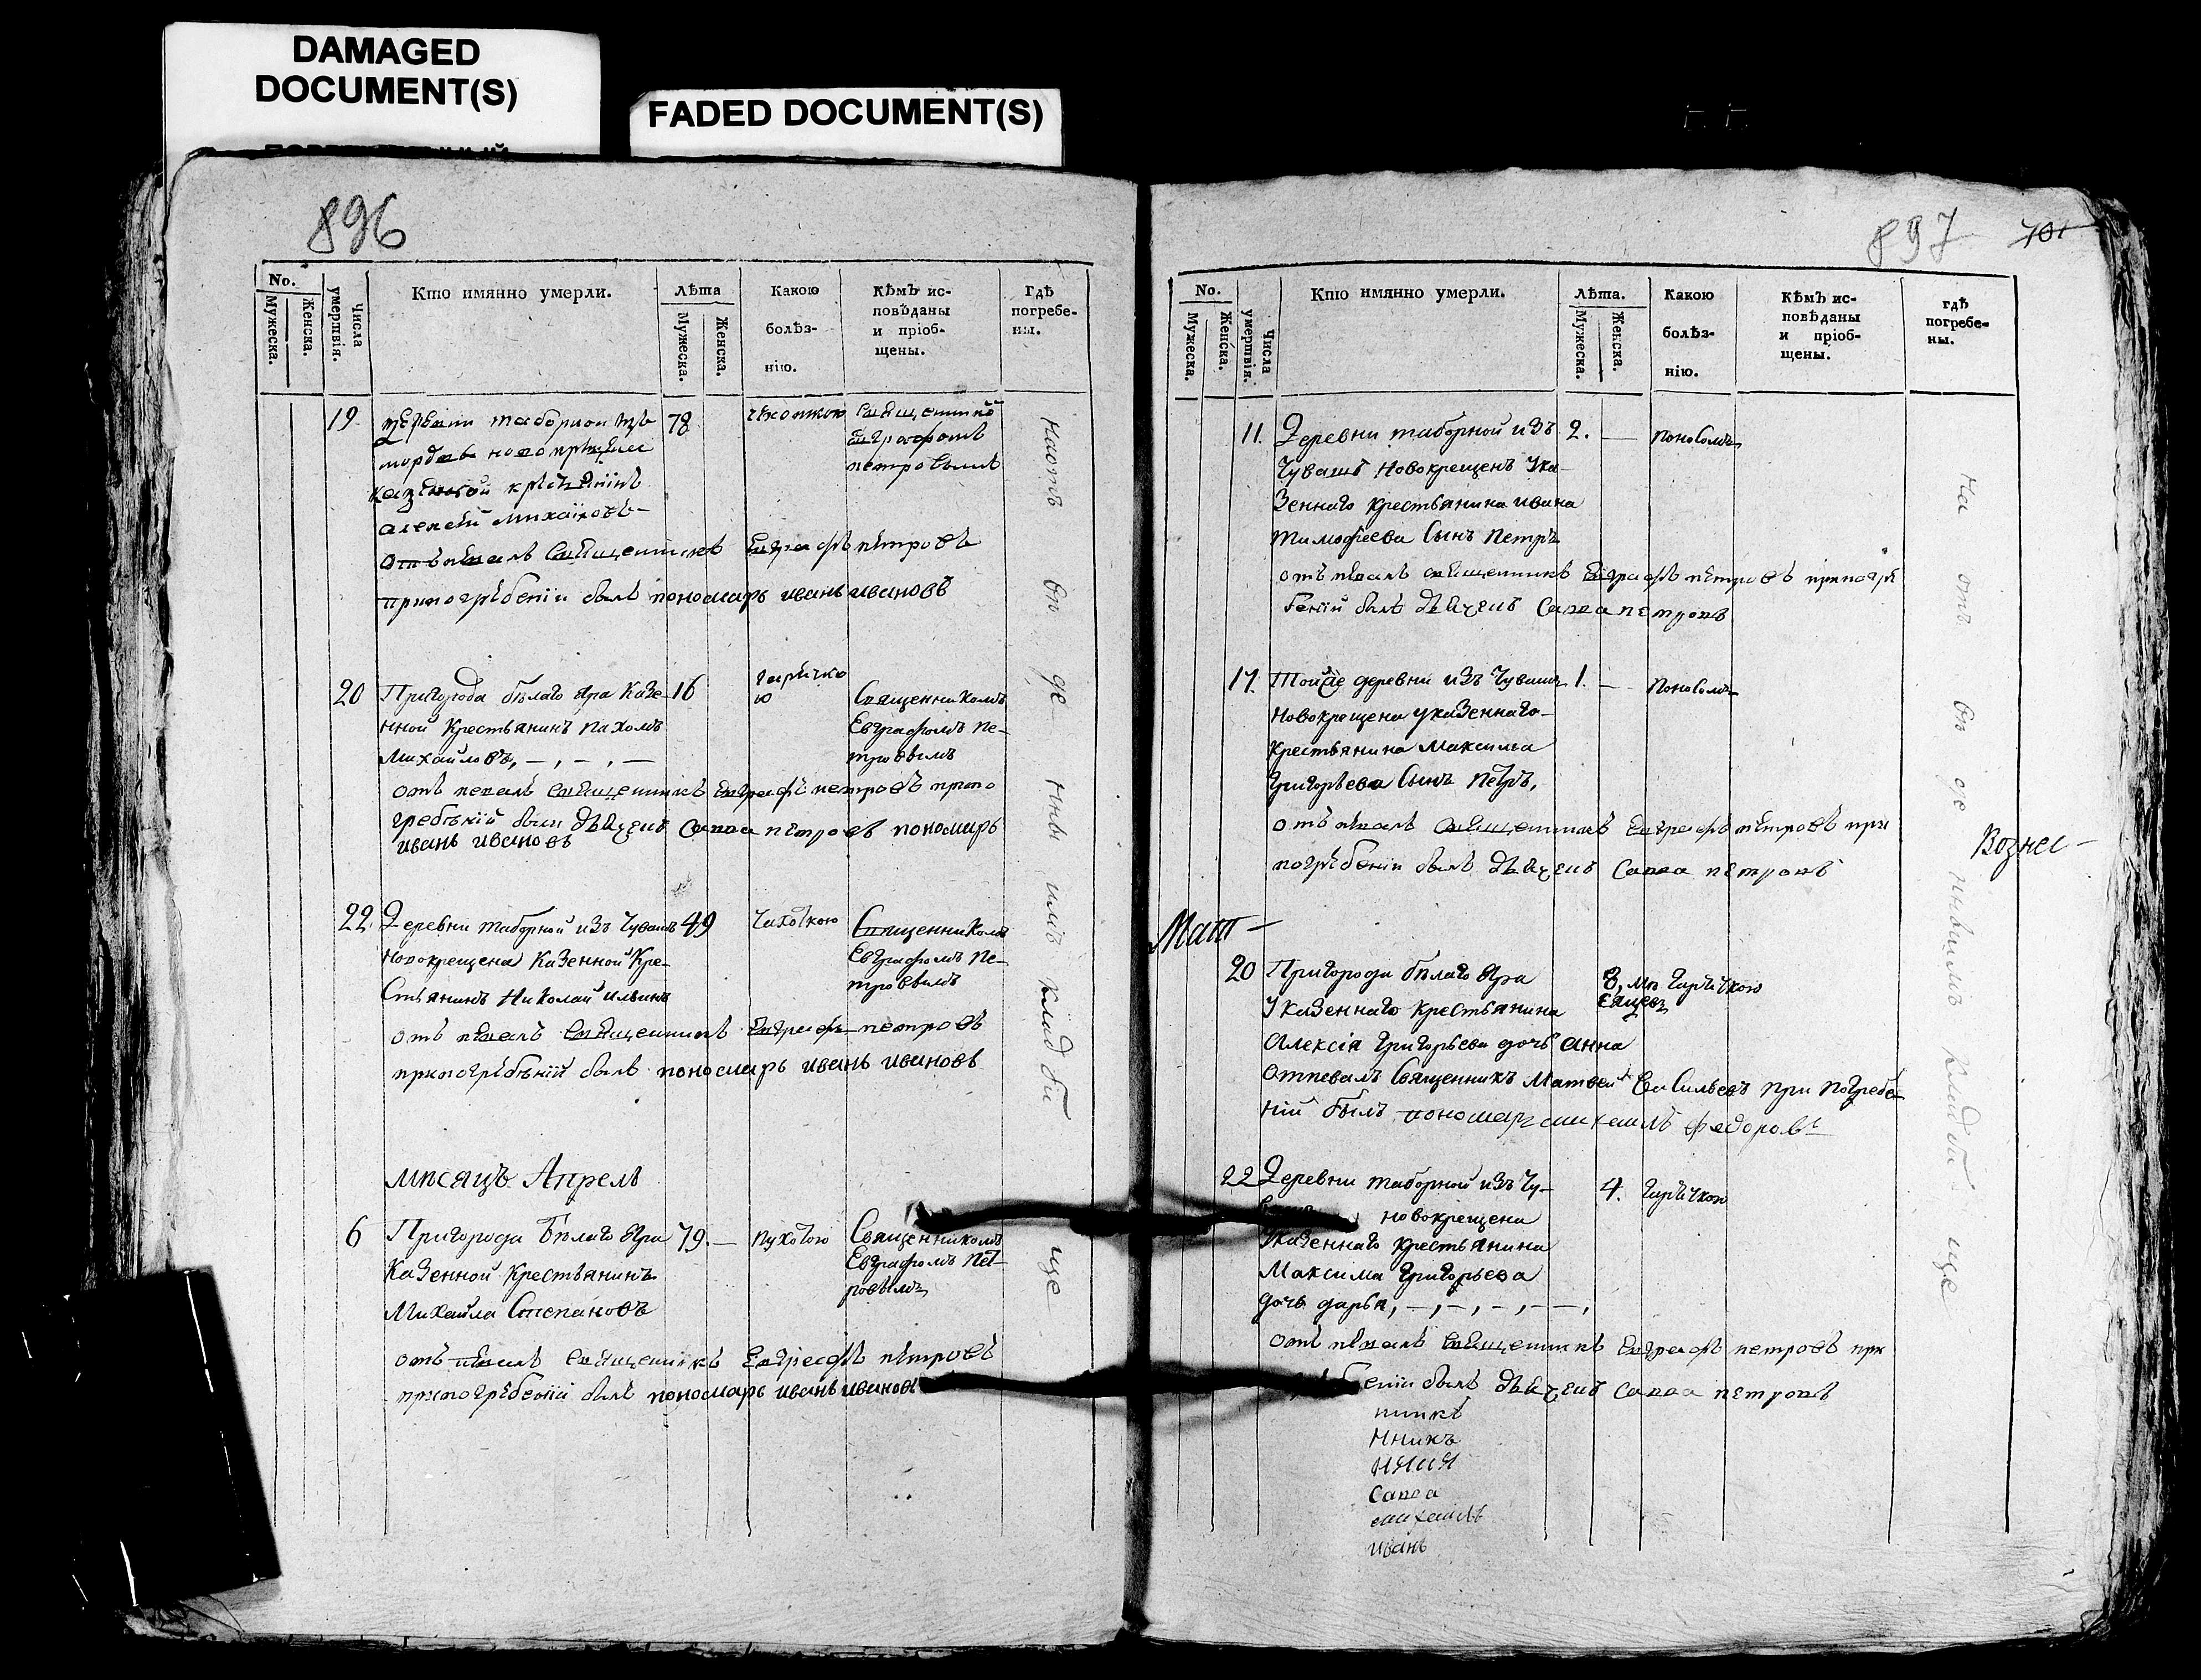 DAMAGED
DOCUMENT(S)
FADED DOCUMENT(S)
896
No.
Мужеска.
Женска.
Числа
умертвія.
Кто имянно умерли.
Лѣта
Мужеска.
Женска.
Какою
болѣз-
нію.
Кѣмъ ис-
повѣданы
и пріоб-
щены.
Гдѣ
погребе-
ны.
19 78
алексѣй михайловъ
петровымъ
отъпѣвалъ священникъ Евграфъ петровъ
припогрѣбеніи былъ пономарь иванъ ивановъ
20 Пригорода бѣлаго Яра Казе- 16
нной Крестьянинъ пахомъ
Михайловъ, — , — , —
Священникомъ
Евграфомъ Пе-
тровымъ
отъ певалъ священникъ Евграфъ петровъ припо
гребѣній были дьячекъ Савва петровъ пономарь
иванъ ивановъ
22. Деревни таборной изъ Чувашъ 49 Чахоткою
Новокрещена Казенной Кре-
стьянинъ Николай ильинъ
Священникомъ
Евграфомъ Пе-
тровымъ
отъ пѣвалъ священникъ Евграфъ петровъ
припогрѣбѣній былъ пономарь иванъ ивановъ
мѣсяцъ Апрель
6 Пригорода Бѣлаго Яра 79. —
Казенной Крестьянинъ
Михайла Степановъ
Священникомъ
Евграфомъ Пет-
ровымъ
отъ пѣвалъ священникъ Евграфъ пѣтровъ
припогрѣбеній былъ пономарь иванъ ивановъ
897 701
No.
Мужеска.
Женска.
Числа
умертвія.
Кто имянно умерли.
Лѣта.
Мужеска.
Женска.
Какою
болѣз-
нію.
Кѣмъ ис-
повѣданы
и пріоб-
щены.
гдѣ
погребе-
ны.
11. Деревни таборной изъ 2. — поносомъ
Чувашъ Новокрещенъ Ука-
зеннаго Крестьянина ивана
тимофеева Сынъ Петръ
отъ пѣвалъ священникъ Евграфъ пѣтровъ припогрѣ
беній былъ дьячекъ Савва петровъ
17. Тойже деревни изъ Чувашъ 1. — поносомъ
Новокрещена указеннаго
Крестьянина Максима
Григорьева Сынъ Петръ,
отъ пѣвалъ священникъ Евграфъ пѣтровъ при
погрѣбеніи былъ дьячекъ Савва петровъ
Вознес-
Маій
20 Пригорода бѣлаго Яра
Указеннаго Крестьянина
Алексія Григорьева дочь анна
8, мѣ
сяцев Гарячкою
отпевалъ Священникъ Матвей Васильевъ при погребе-
ній былъ пономарь михаилъ федоровъ
22 Деревни таборной изъ Чу- 4. Гарячкою
новокрещена
Указеннаго крестьянина
Максима Григорьева
дочь дарья, — , — , — , — — ,
отъ пѣвалъ священникъ Евграфъ петровъ при
беніи былъ дьячекъ Савва петровъ
никъ
нникъ
Савва
михаилъ
иванъ